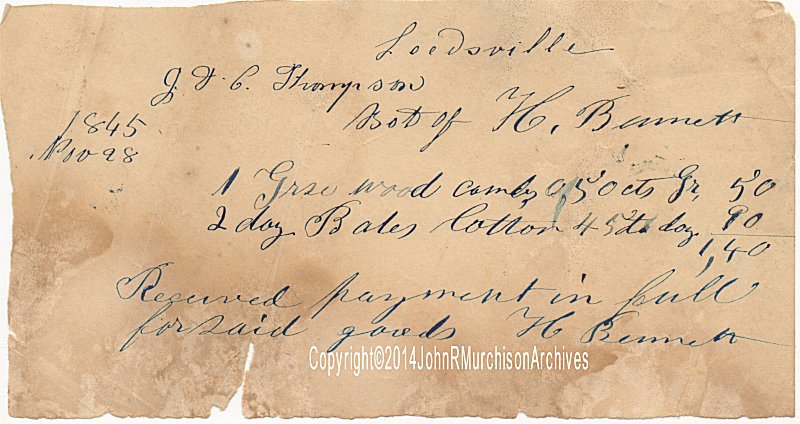 Leedsville
J. & C. Thompson
Bot of H. Bennett
1845
Nov 28
1 Grse wood combs @ 50 cts Gr, 50
2 doz Bales Cotton 45 cts doz 90
1,40
Received payment in full
for said goods H Bennett
Copyright©2014JohnRMurchisonArchives